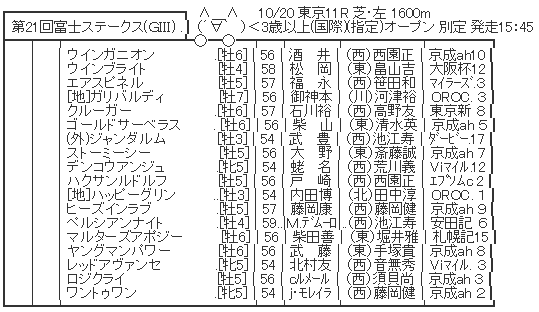 10/20 東京11R 芝・左 1600m
第21回富士ステークス(GIII) . ( ´∀`) <3歳以上(国際)(指定)オープン 別定 発走15:45
ウインガニオン ..[牡6] | 56 | 酒 井 | (西)西園正 | 京成ah10
ウインブライト .[牡4] | 58 | 松 岡 | (東)畠山吉 | 大阪杯12
エアスピネル [牡5] | 57 | 福 永 | (西)笹田和 | マイラーズ.3
[地]ガリバルディ [牡7] | 56 | 御神本 | (川)河津裕 | OROC. 3
クルーガー [牡6] | 57 | 石川裕 | (西)高野友 | 東京新 8
ゴールドサーベラス [牡6] | 56 | 柴 山 | (東)清水英 | 京成ah 5
(外)ジャンダルム [牡3] | 54 | 武 豊 | (西)池江寿 | ダービー.17
ストーミーシー [牡5] | 56 | 大 野 | (東)斎藤誠 | 京成ah 7
デンコウアンジュ [牝5] | 54 | 蛯 名 | (西)荒川義 | Viマイル.12
ハクサンルドルフ [牡5] | 56 | 戸 崎 | (西)西園正 | エプソムc 2
[地]ハッピーグリン ..[牡3] | 54 | 内田博 | (北)田中淳 | OROC. 1
ヒーズインラブ [牡5] | 57 | 藤岡康 | (西)藤岡健 | 京成ah 9
ペルシアンナイト [牡4] | 59.. | M.デムーロ | ..(西)池江寿 | 安田記 6
マルターズアポジー [牡6] | 56 | 柴田善 | (東)堀井雅 | 札幌記15
ヤングマンパワー [牡6] | 56 | 武 藤 | (東)手塚貴 | 京成ah 8
レッドアヴァンセ [牝5] | 54 | 北村友 | (西)音無秀 | Viマイル. 3
ロジクライ [牡5] | 56 | c.ルメール | (西)須貝尚 | 京成ah 3
ワントゥワン .[牝5] | 54 | j・モレイラ | (西)藤岡健 | 京成ah 2